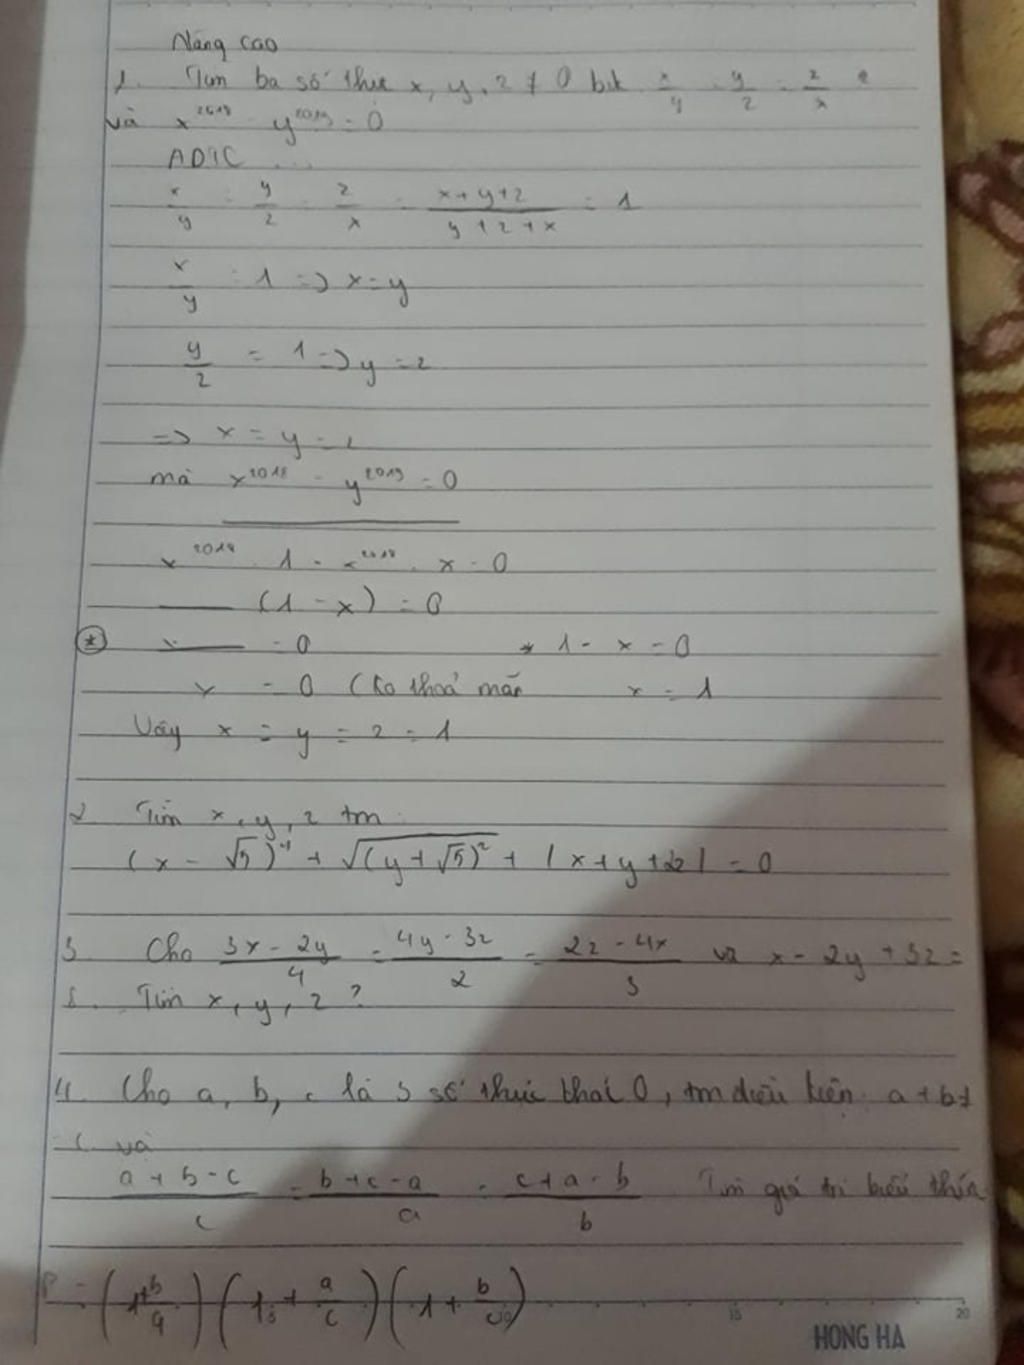 Nâng cao
1. Tìm ba số thực x, y, z ≠ 0 bit x/y = y/z = z/x
và x^2018 - y^2019 = 0
ADTC ...
x/y = y/z = z/x = (x+y+z)/(y+z+x) = 1
x/y = 1 => x = y
y/z = 1 => y = z
=> x = y = z
mà x^2018 - y^2019 = 0
x^2018 . 1 - x^2018 . x = 0
(1 - x) = 0
* x = 0 * 1 - x = 0
x = 0 (Ko thoả mãn x = 1
Vậy x = y = z = 1
2. Tìm x, y, z tm
(x - √5) + √(y+√5)^2 + |x+y+z| = 0
3. Cho (3x - 2y)/4 = (4y - 3z)/2 = (2z - 4x)/3 và x - 2y + 3z =
8. Tìm x, y, z ?
4. Cho a, b, c là 3 số thực khác 0, tm điều kiện a + b ≠
-c và
(a + b - c)/c = (b + c - a)/a = (c + a - b)/b . Tìm giá trị biểu thức
P = (1+b/a)(1 + a/c)(1 + b/
15 20
HONG HA